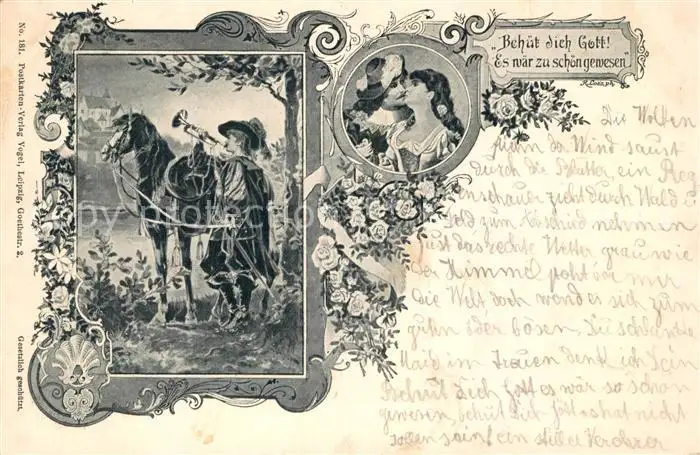 No. 181. Postkarten-Verlag Vogel, Leipzig, Goethestr. 2.
Gesetzlich geschützt.
„Behüt dich Gott!
Es wär zu schön gewesen"
Die Wolken
fliehn der Wind saust
durch die Blätter, ein Reg
enschauer zieht durch Wald u
Feld zum Abschied nehmen
just das rechte Wetter grau wie
der Himmel steht vor mir
die Welt doch wend es sich zum
guten oder bösen, Du schlanke
Maid in Treuen denk ich Dein
Behüt Dich Gott es wär so schön
gewesen, behüt Dich Gott es hat nicht
sollen sein! ein stiller Verehrer